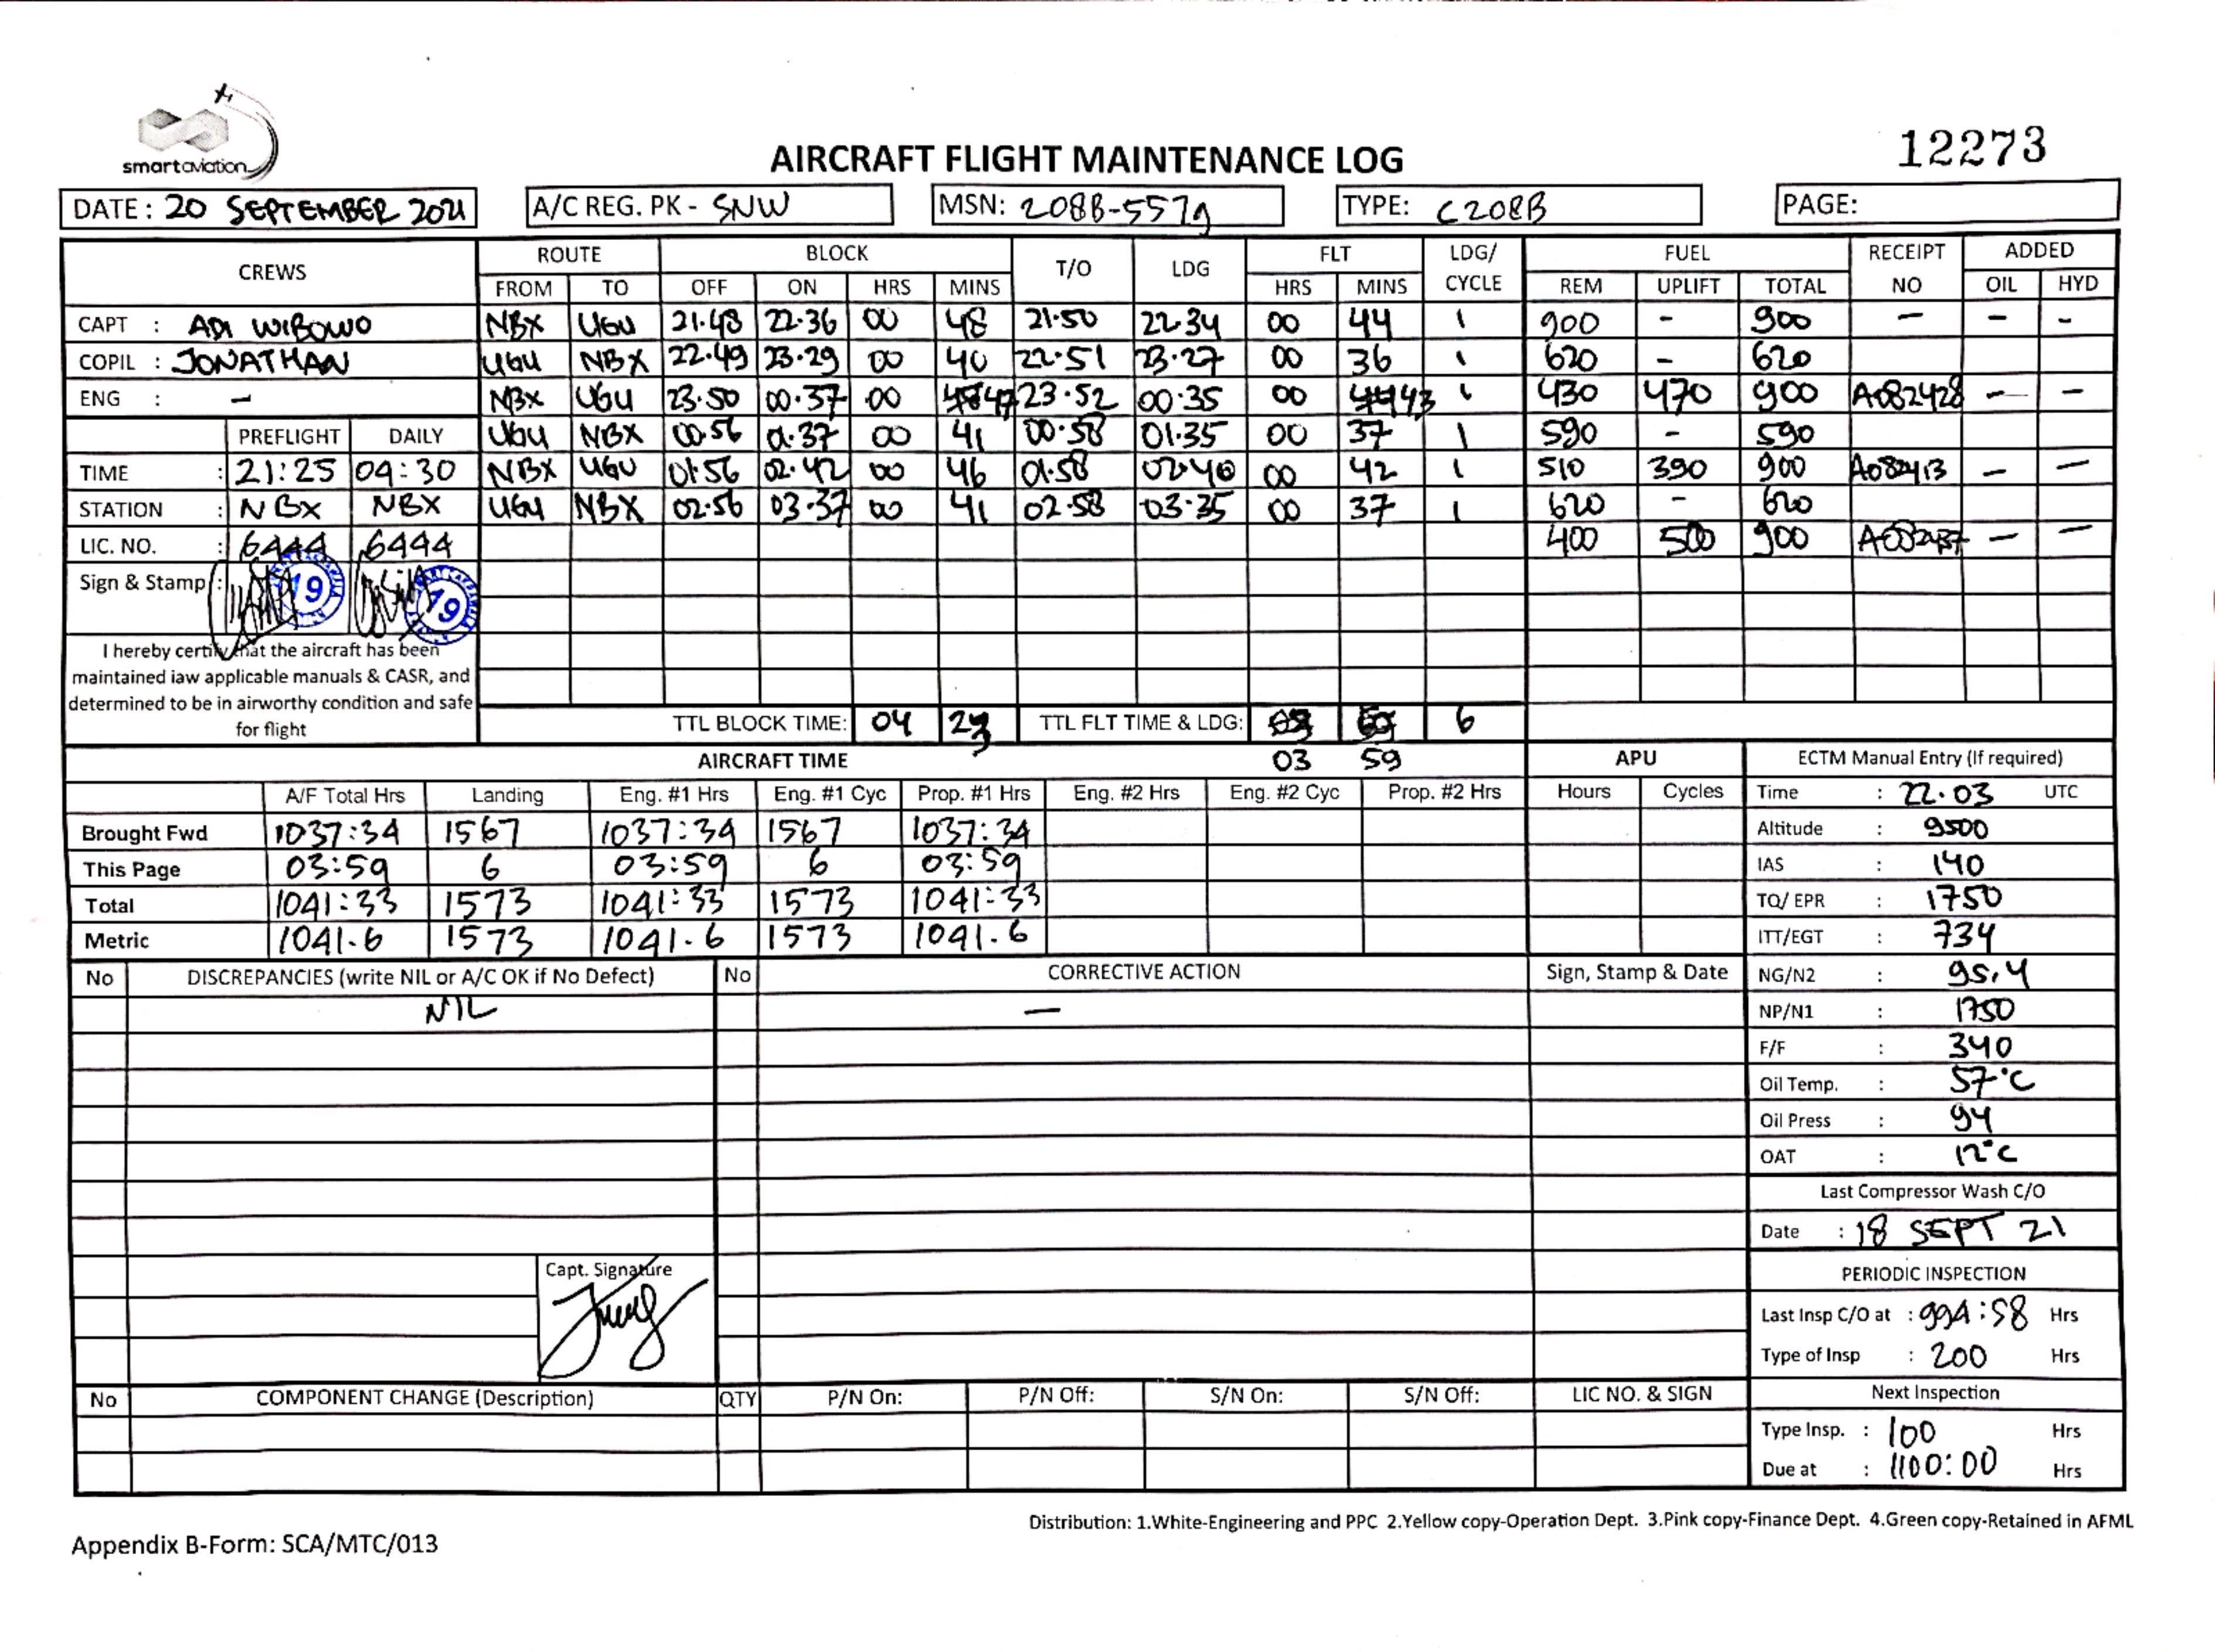 smartaviation
AIRCRAFT FLIGHT MAINTENANCE LOG
12273
DATE: 20 SEPTEMBER 2021 A/C REG. PK - SNW MSN: 208B-5579 TYPE: C208B PAGE:
CREWS ROUTE BLOCK T/O LDG FLT LDG/ CYCLE FUEL RECEIPT NO ADDED
FROM TO OFF ON HRS MINS HRS MINS REM UPLIFT TOTAL OIL HYD
CAPT : ADI WIBOWO NBX UGU 21.48 22.36 00 48 21.50 22.34 00 44 1 900 - 900 - - -
COPIL : JONATHAN UGU NBX 22.49 23.29 00 40 22.51 23.27 00 36 1 620 - 620
ENG : - NBX UGU 23.50 00.37 00 47 23.52 00.35 00 43 1 430 470 900 A082428 - -
PREFLIGHT DAILY UGU NBX 00.56 01.37 00 41 00.58 01.35 00 37 1 590 - 590
TIME : 21:25 04:30 NBX UGU 01.56 02.42 00 46 01.58 02.40 00 42 1 510 390 900 A082413 - -
STATION : NBX NBX UGU NBX 02.56 03.37 00 41 02.58 03.35 00 37 1 620 - 620
LIC. NO. : 6444 6444 400 500 900 - -
Sign & Stamp : 19 19
I hereby certify that the aircraft has been
maintained iaw applicable manuals & CASR, and
determined to be in airworthy condition and safe
for flight
TTL BLOCK TIME: 04 23 TTL FLT TIME & LDG: 6
03 59
AIRCRAFT TIME APU ECTM Manual Entry (If required)
A/F Total Hrs Landing Eng. #1 Hrs Eng. #1 Cyc Prop. #1 Hrs Eng. #2 Hrs Eng. #2 Cyc Prop. #2 Hrs Hours Cycles Time : 22.03 UTC
Brought Fwd 1037:34 1567 1037:34 1567 1037:34 Altitude : 9500
This Page 03:59 6 03:59 6 03:59 IAS : 140
Total 1041:33 1573 1041:33 1573 1041:33 TQ/ EPR : 1750
Metric 1041.6 1573 1041.6 1573 1041.6 ITT/EGT : 734
No DISCREPANCIES (write NIL or A/C OK if No Defect) No CORRECTIVE ACTION Sign, Stamp & Date NG/N2 : 95.4
NIL - NP/N1 : 1750
F/F : 340
Oil Temp. : 57°C
Oil Press : 94
OAT : 12°C
Last Compressor Wash C/O
Date : 18 SEPT 21
Capt. Signature
PERIODIC INSPECTION
Last Insp C/O at : 994:58 Hrs
Type of Insp : 200 Hrs
No COMPONENT CHANGE (Description) QTY P/N On: P/N Off: S/N On: S/N Off: LIC NO. & SIGN Next Inspection
Type Insp. : 100 Hrs
Due at : 1100:00 Hrs
Distribution: 1.White-Engineering and PPC 2.Yellow copy-Operation Dept. 3.Pink copy-Finance Dept. 4.Green copy-Retained in AFML
Appendix B-Form: SCA/MTC/013